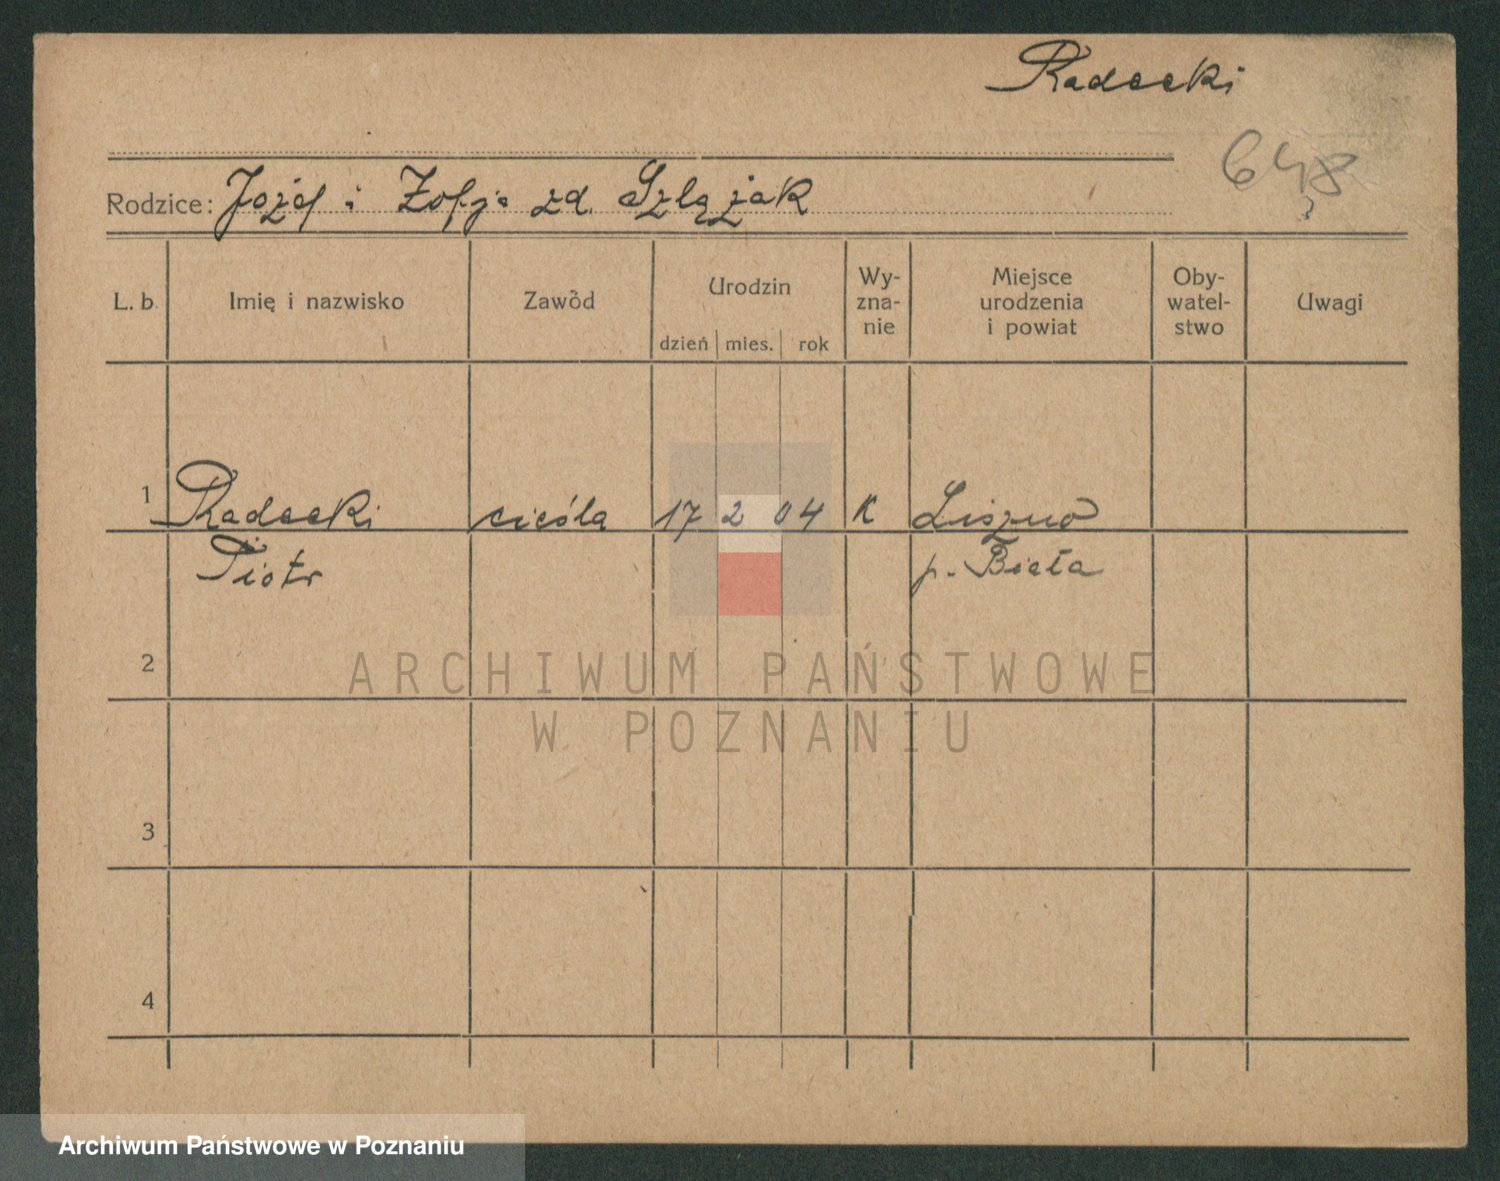 Radecki
648
Rodzice: Józef i Zofja zd. Szlązak
L. b. Imię i nazwisko Zawód Urodzin dzień mies. rok Wy- zna- nie Miejsce urodzenia i powiat Oby- watel- stwo Uwagi
1 Radecki cieśla 17 2 04 K Liszno
Piotr p. Biała
2
ARCHIWUM PAŃSTWOWE
W POZNANIU
3
4
Archiwum Państwowe w Poznaniu